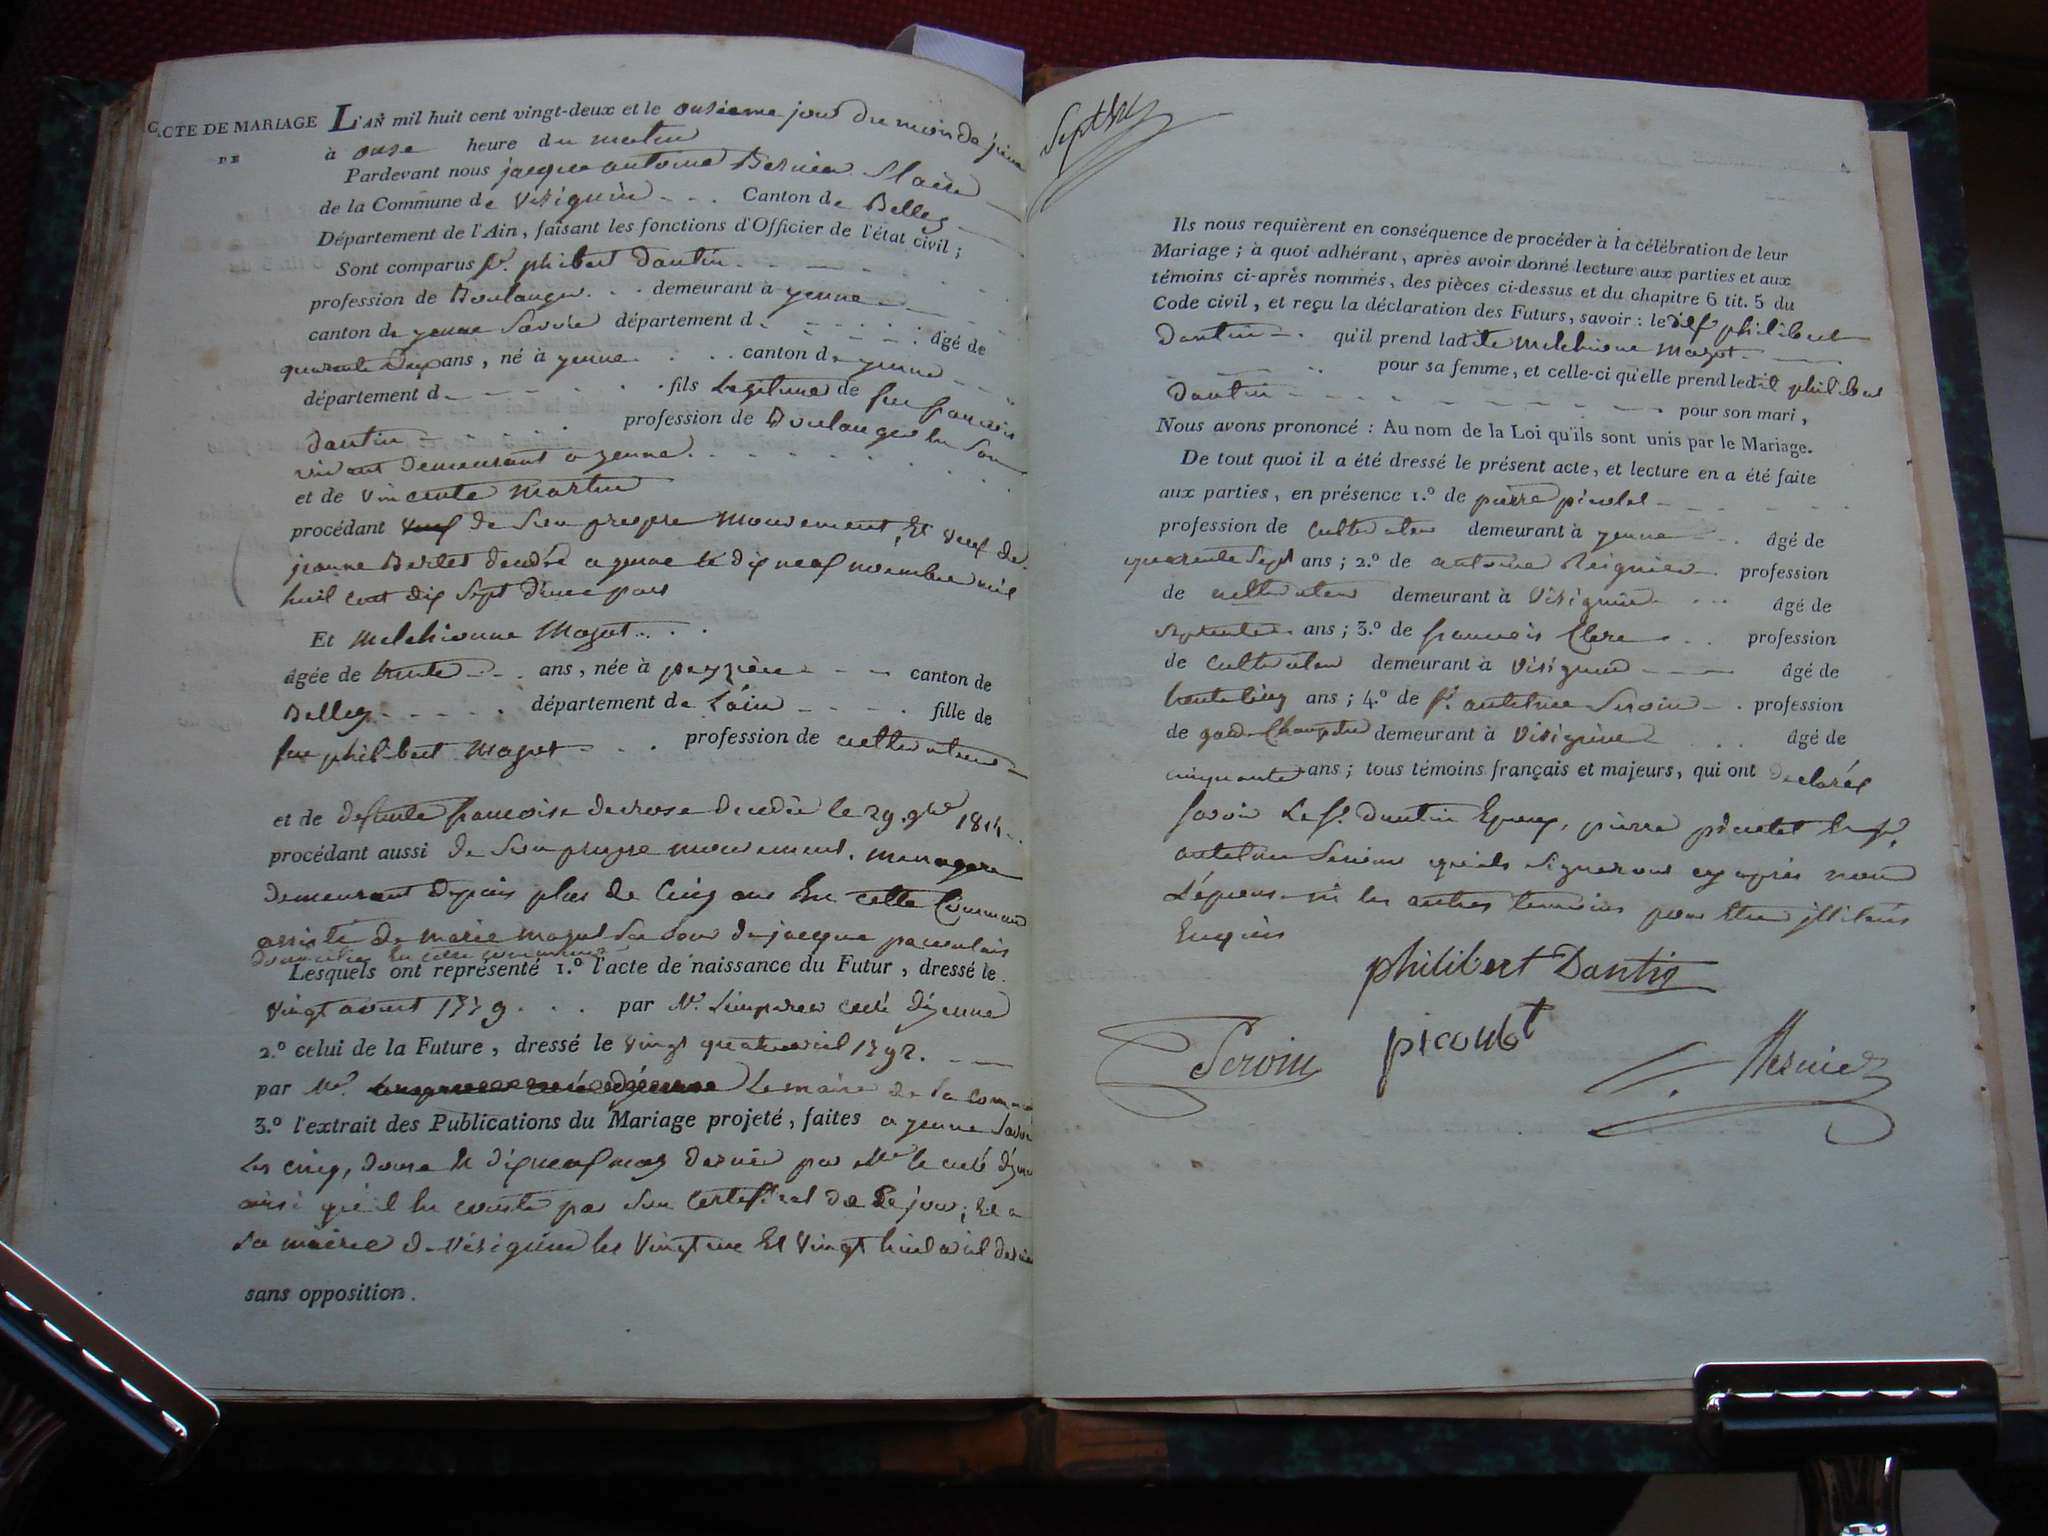 ACTE DE MARIAGE
DE
L'AN mil huit cent vingt-deux et le onsieme jour du mois de
à onse heure du matin
Pardevant nous jacque antoine Maire
de la Commune de Virignin Canton de Belley
Département de l'Ain, faisant les fonctions d'Officier de l'état civil;
Sont comparus Sr. phibert dantin
profession de Boulanger demeurant à yenne
canton de yenne Savoie département d
âgé de
quarante deux ans, né à yenne canton de yenne
département d fils Legitime de feu francois
dantin profession de Boulanger en son
vivant demeurant a yenne
et de vincente martin
procédant veuf de son propre mouvement, Et veuf de
jeanne Bertet décédé a yenne le dix neuf novembre mil
huil cent dix Sept
Et melchionne Mazut
âgée de trente ans, née à peyzieu canton de
Belley département de L'ain fille de
feu philibert Mazut profession de cultivateur
et de defunte francoise decrose decedée le 29. 9bre 1814
procédant aussi de son propre mouvement, menagere
demeurant depuis plus de Cinq ans En cette Commune
assisté de marie mazut sa soeur de jacque
domiciliés En cette commune
Lesquels ont représenté 1.º l'acte de naissance du Futur, dressé le
vingt aoust 1779 par Mr. curé d'yenne
2.º celui de la Future, dressé le vingt quatre avril 1792.
par Mr. Le maire de sa commune
3.º l'extrait des Publications du Mariage projeté, faites a yenne Savoie
Les cinq, douse Et dix neuf may dernier par Mr le curé d'yenne
ainsi qu'il En conste par son Certificat de ce jour; Et a
la mairie de virignin les vingt une Et vingt huit avril dernier
sans opposition.
Ils nous requièrent en conséquence de procéder à la célébration de leur
Mariage; à quoi adhérant, après avoir donné lecture aux parties et aux
témoins ci-après nommés, des pièces ci-dessus et du chapitre 6 tit. 5 du
Code civil, et reçu la déclaration des Futurs, savoir: le dit philibert
dantin qu'il prend ladite melchionne mazut
pour sa femme, et celle-ci qu'elle prend ledit philibert
dantin pour son mari,
Nous avons prononcé: Au nom de la Loi qu'ils sont unis par le Mariage.
De tout quoi il a été dressé le présent acte, et lecture en a été faite
aux parties, en présence 1.º de pierre picolet
profession de cultivateur demeurant à yenne âgé de
quarente Sept ans; 2.º de antoine Reignier profession
de cultivateur demeurant à virignin âgé de
Septente ans; 3.º de francois Clerc profession
de cultivateur demeurant à virignin âgé de
trente cinq ans; 4.º de Sr. antelme Servin profession
de garde Champetre demeurant à virignin âgé de
cinquante ans; tous témoins français et majeurs, qui ont declarés
savoir Le Sr. dantin Epoux, pierre picolet Et Sr.
antelme Servin qu'ils signeront cy après nous
L'épouse ni les autres temoins pour Etre illiterés
Enquis
philibert Dantin
Servin
picoulet